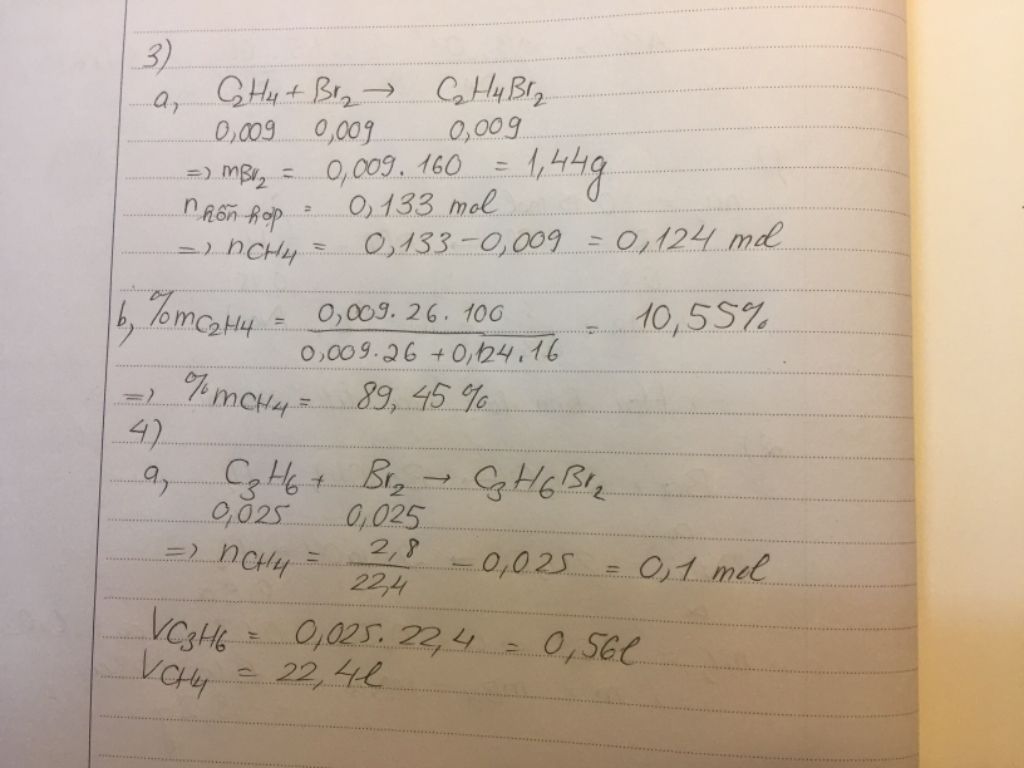 3)
a, C₂H₄ + Br₂ → C₂H₄Br₂
0,009 0,009 0,009
=> mBr₂ = 0,009. 160 = 1,44g
n hỗn hợp = 0,133 mol
=> nCH₄ = 0,133 - 0,009 = 0,124 mol
b, %mC₂H₄ = 0,009. 26. 100 / 0,009.26 + 0,124.16 = 10,55%
=> %mCH₄ = 89,45 %
4)
a, C₃H₆ + Br₂ → C₃H₆Br₂
0,025 0,025
=> nCH₄ = 2,8 / 22,4 - 0,025 = 0,1 mol
VC₃H₆ = 0,025. 22,4 = 0,56l
VCH₄ = 22,4l